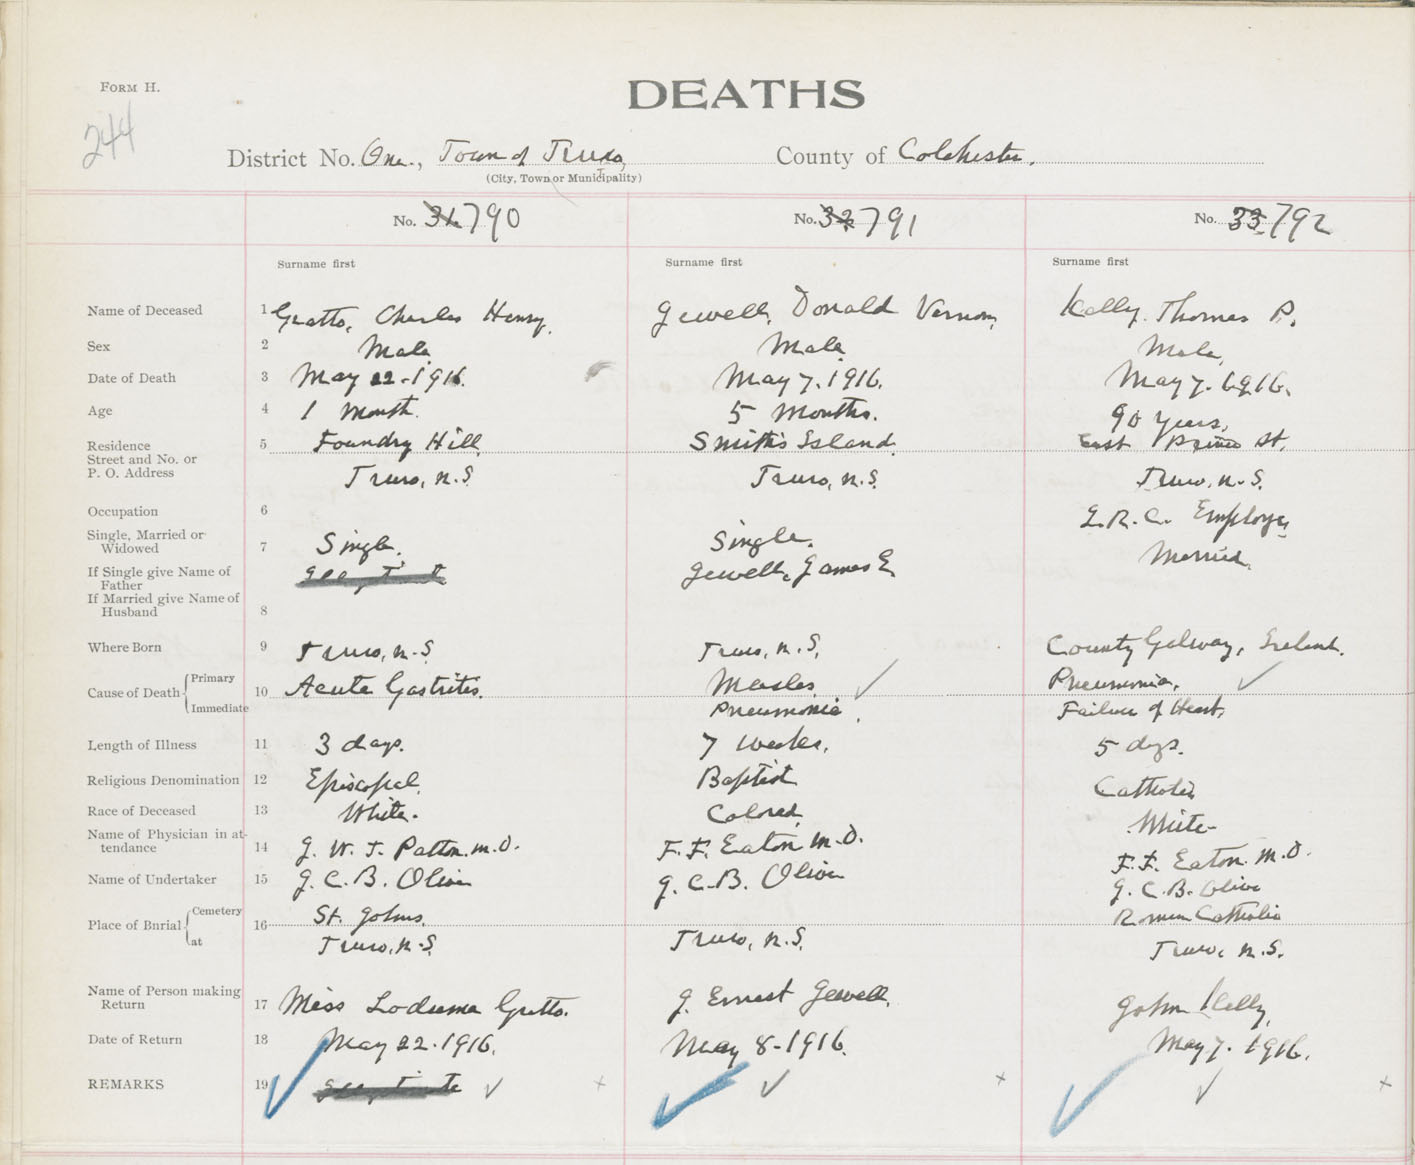 FORM H.
DEATHS
244
District No. One., Town of Truro, County of Colchester.
(City, Town or Municipality)
No. 31 790 No. 32 791 No. 33 792
Surname first Surname first Surname first
Name of Deceased 1 Gratto, Charles Henry. Jewell, Donald Vernon, Kelly. Thomas P.
Sex 2 Male Male Male,
Date of Death 3 May 22-1916. May 7. 1916. May 7. 1916.
Age 4 1 Month. 5 Months. 90 Years,
Residence 5 Foundry Hill, Smith's Island, East Prince St,
Street and No. or
P. O. Address Truro, N.S. Truro, N.S. Truro, N.S.
Occupation 6 I.R.C. Employe,
Single, Married or
Widowed 7 Single. Single. Married.
If Single give Name of
Father Jewell, James E.
If Married give Name of
Husband 8
Where Born 9 Truro, N.S. Truro, N.S, County Galway, Ireland.
Cause of Death Primary 10 Acute Gastritis. Measles. Pneumonia.
Immediate Pneumonia. Failure of Heart,
Length of Illness 11 3 days. 7 weeks. 5 days.
Religious Denomination 12 Episcopal. Baptist Catholic
Race of Deceased 13 White. Colored White
Name of Physician in at-
tendance 14 J. W. T. Patton. M.D. F. F. Eaton M.D. F. F. Eaton. M.D.
Name of Undertaker 15 J. C. B. Olive J. C. B. Olive J. C. B. Olive
Place of Burial Cemetery 16 St. Johns. Roman Catholic
at Truro, N.S. Truro, N.S. Truro, N.S.
Name of Person making
Return 17 Miss Gratto. J. Ernest Jewell. John Kelly,
Date of Return 18 May 22. 1916. May 8-1916. May 7. 1916.
REMARKS 19